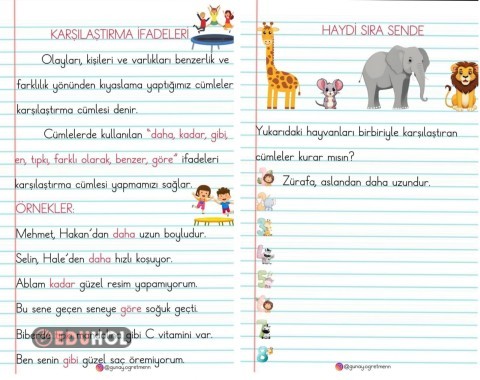 KARŞILAŞTIRMA İFADELERİ
Olayları, kişileri ve varlıkları benzerlik ve
farklılık yönünden kıyaslama yaptığımız cümleler
karşılaştırma cümlesi denir.
Cümlelerde kullanılan “daha, kadar, gibi,
en, tıpkı, farklı olarak, benzer, göre” ifadeleri
karşılaştırma cümlesi yapmamızı sağlar.
ÖRNEKLER:
Mehmet, Hakan’dan daha uzun boyludur.
Selin, Hale’den daha hızlı koşuyor.
Ablam kadar güzel resim yapamıyorum.
Bu sene geçen seneye göre soğuk geçti.
Biberde gibi C vitamini var.
EDUHOL
Ben senin gibi güzel saç öremiyorum.
@gunayogretmenn
HAYDİ SIRA SENDE
Yukarıdaki hayvanları birbiriyle karşılaştıran
cümleler kurar mısın?
Zürafa, aslandan daha uzundur.
8
@gunayogretmenn